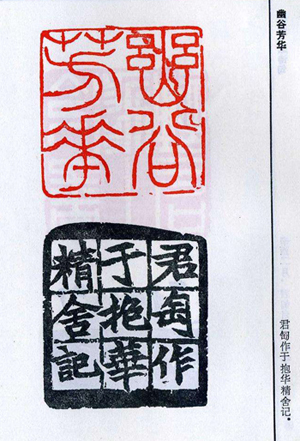 幽谷芳华
幽谷
芳華
君匋作
于抱華
精舍記
君匋作于抱华精舍记。